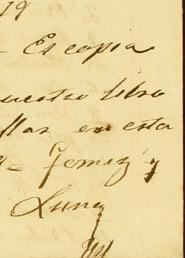 19
- Es copia
nuestro libro
llar en esta
= Gomez y
Luna